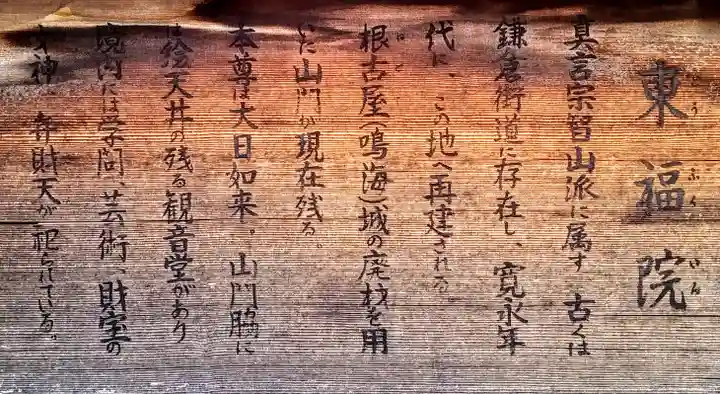 東福院
とうふくいん
真言宗智山派に属す 古くは
鎌倉街道に存在し、寛永年
代に、この地へ再建される。
根古屋(鳴海)城の廃材を用
いた山門が現在残る。
本尊は大日如来。山門脇に
は絵天井の残る観音堂があり
境内には学問、芸術、財宝の
女神 弁財天が祀られている。